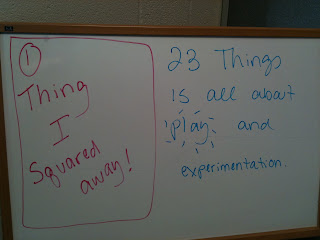 1
Thing
I
Squared
away!
23 Things
is all about
play and
experimentation.